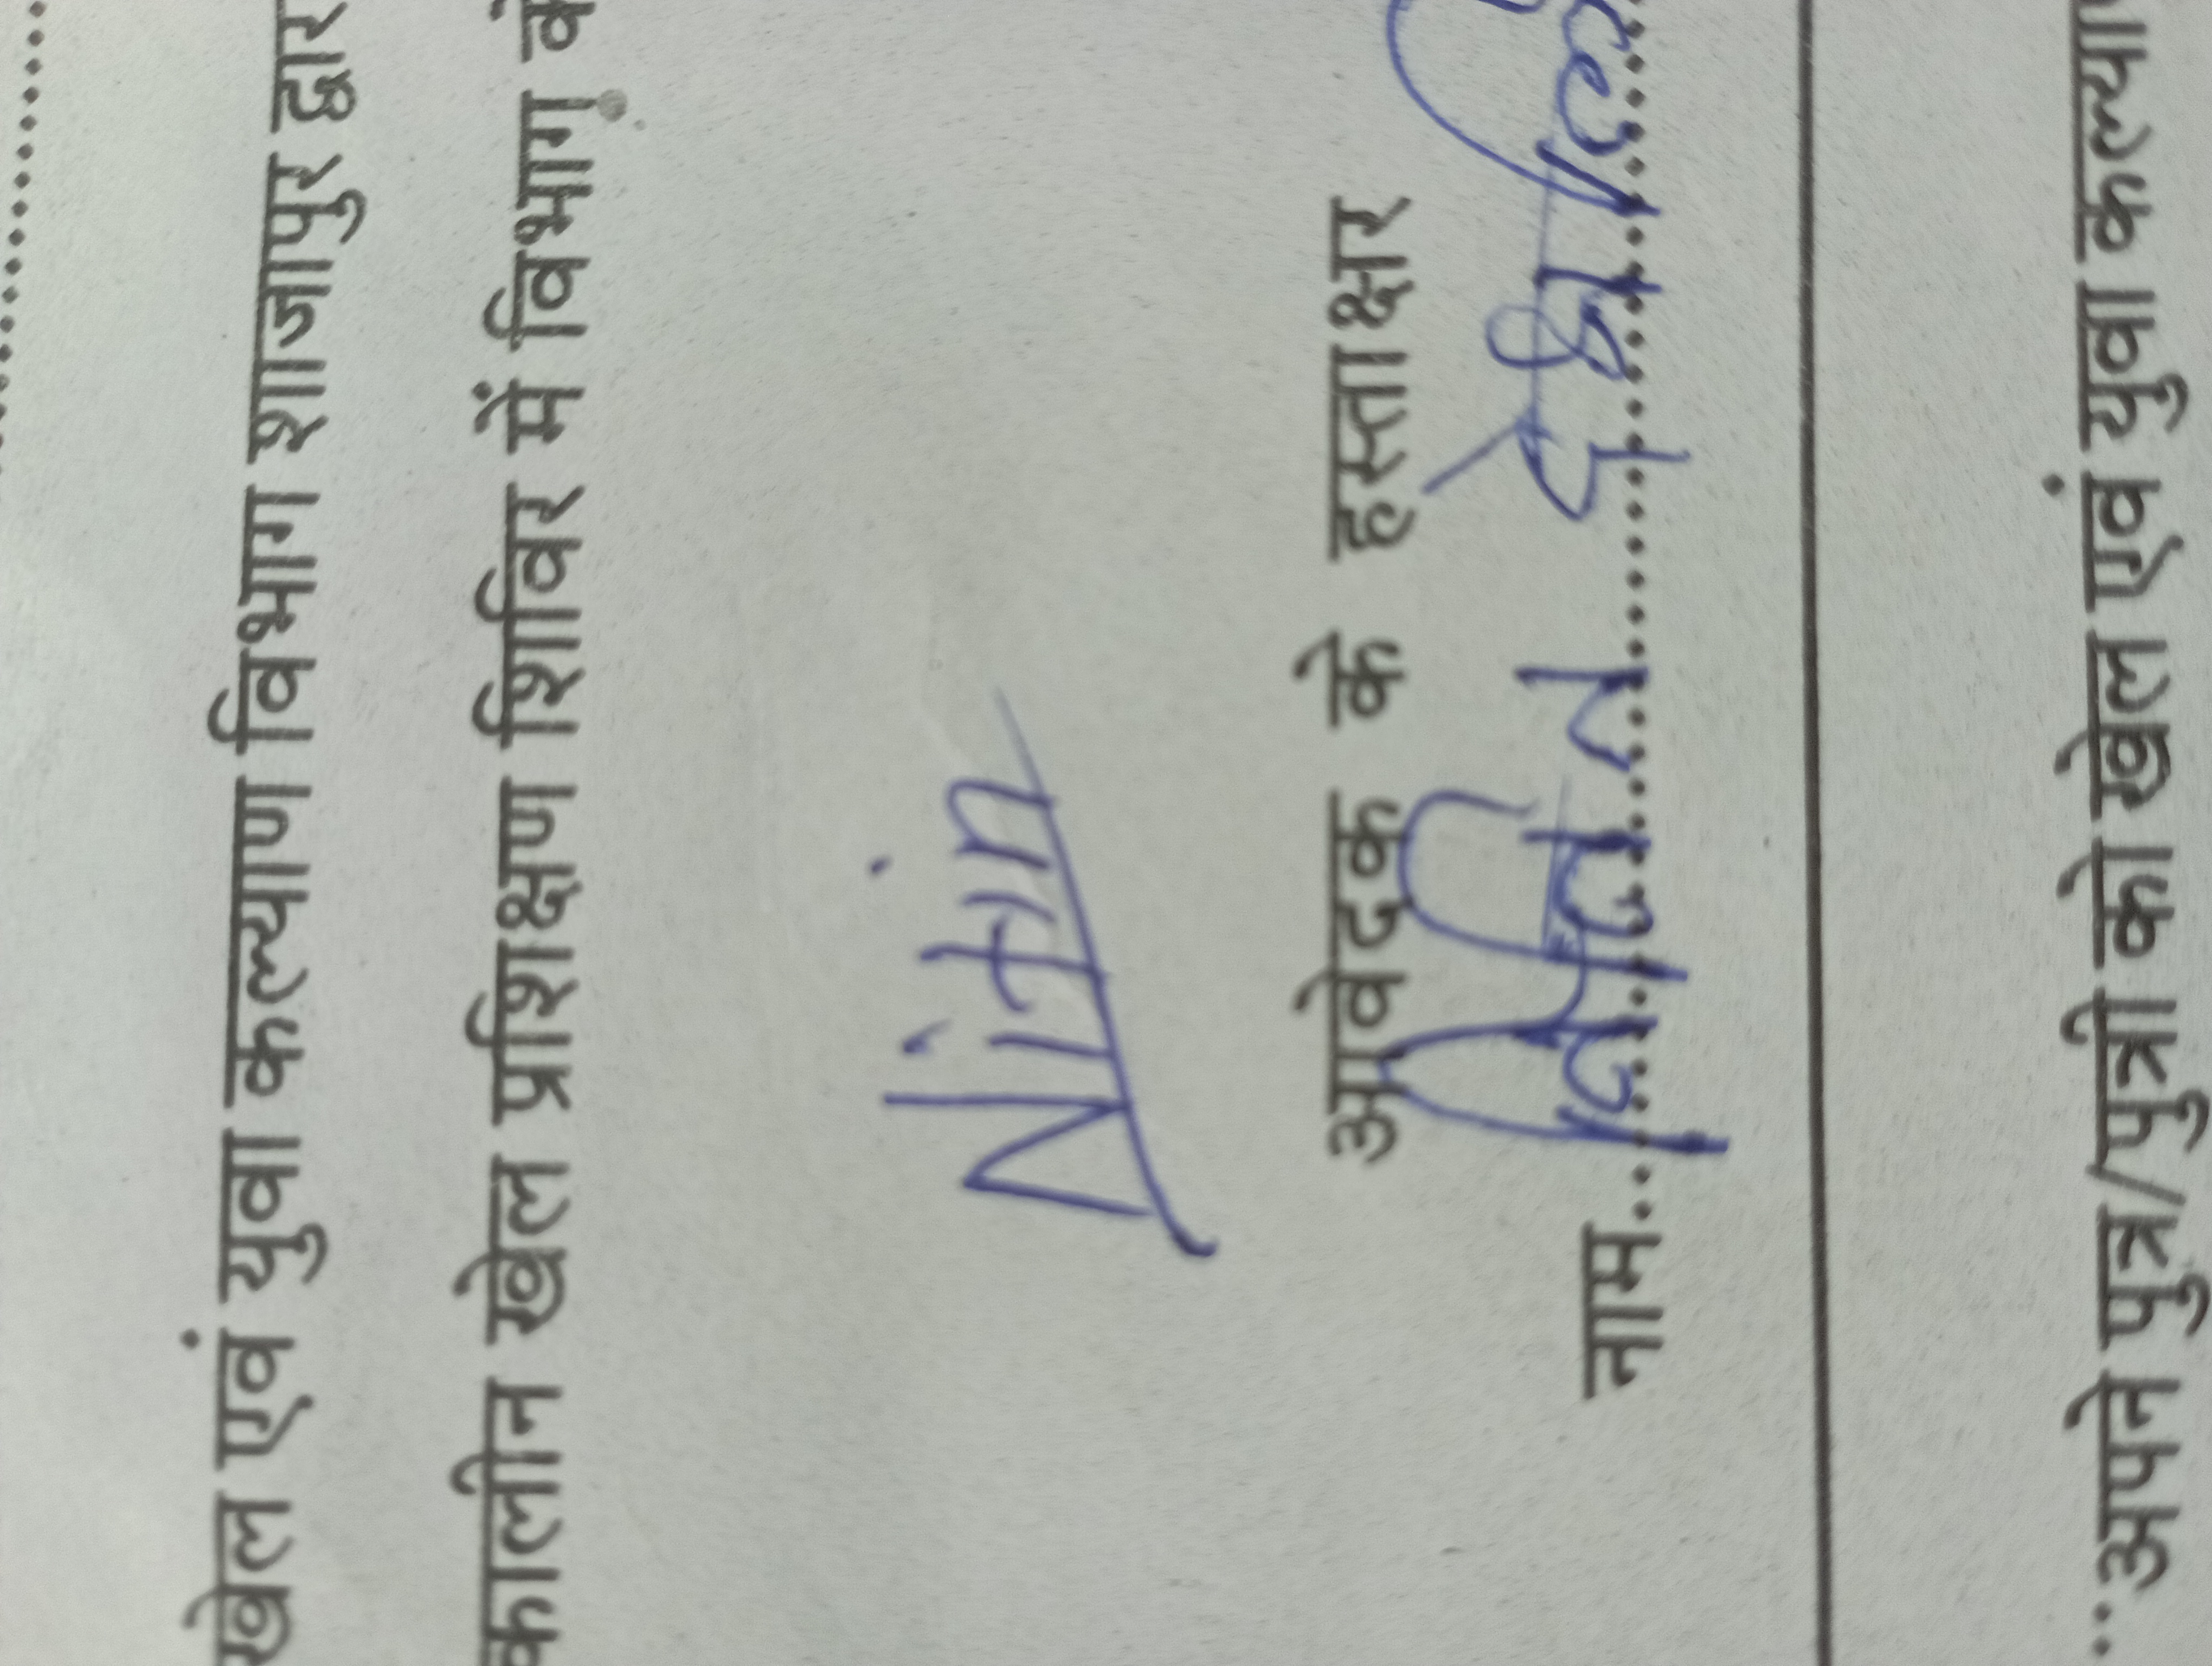 खेल एवं युवा कल्याण विभाग शाजापुर द्वार
कालीन खेल प्रशिक्षण शिविर में विभाग के
Nitin
आवेदक के हस्ताक्षर
नाम.. नितिन
..अपने पुत्र/पुत्री को खेल एवं युवा कल्या